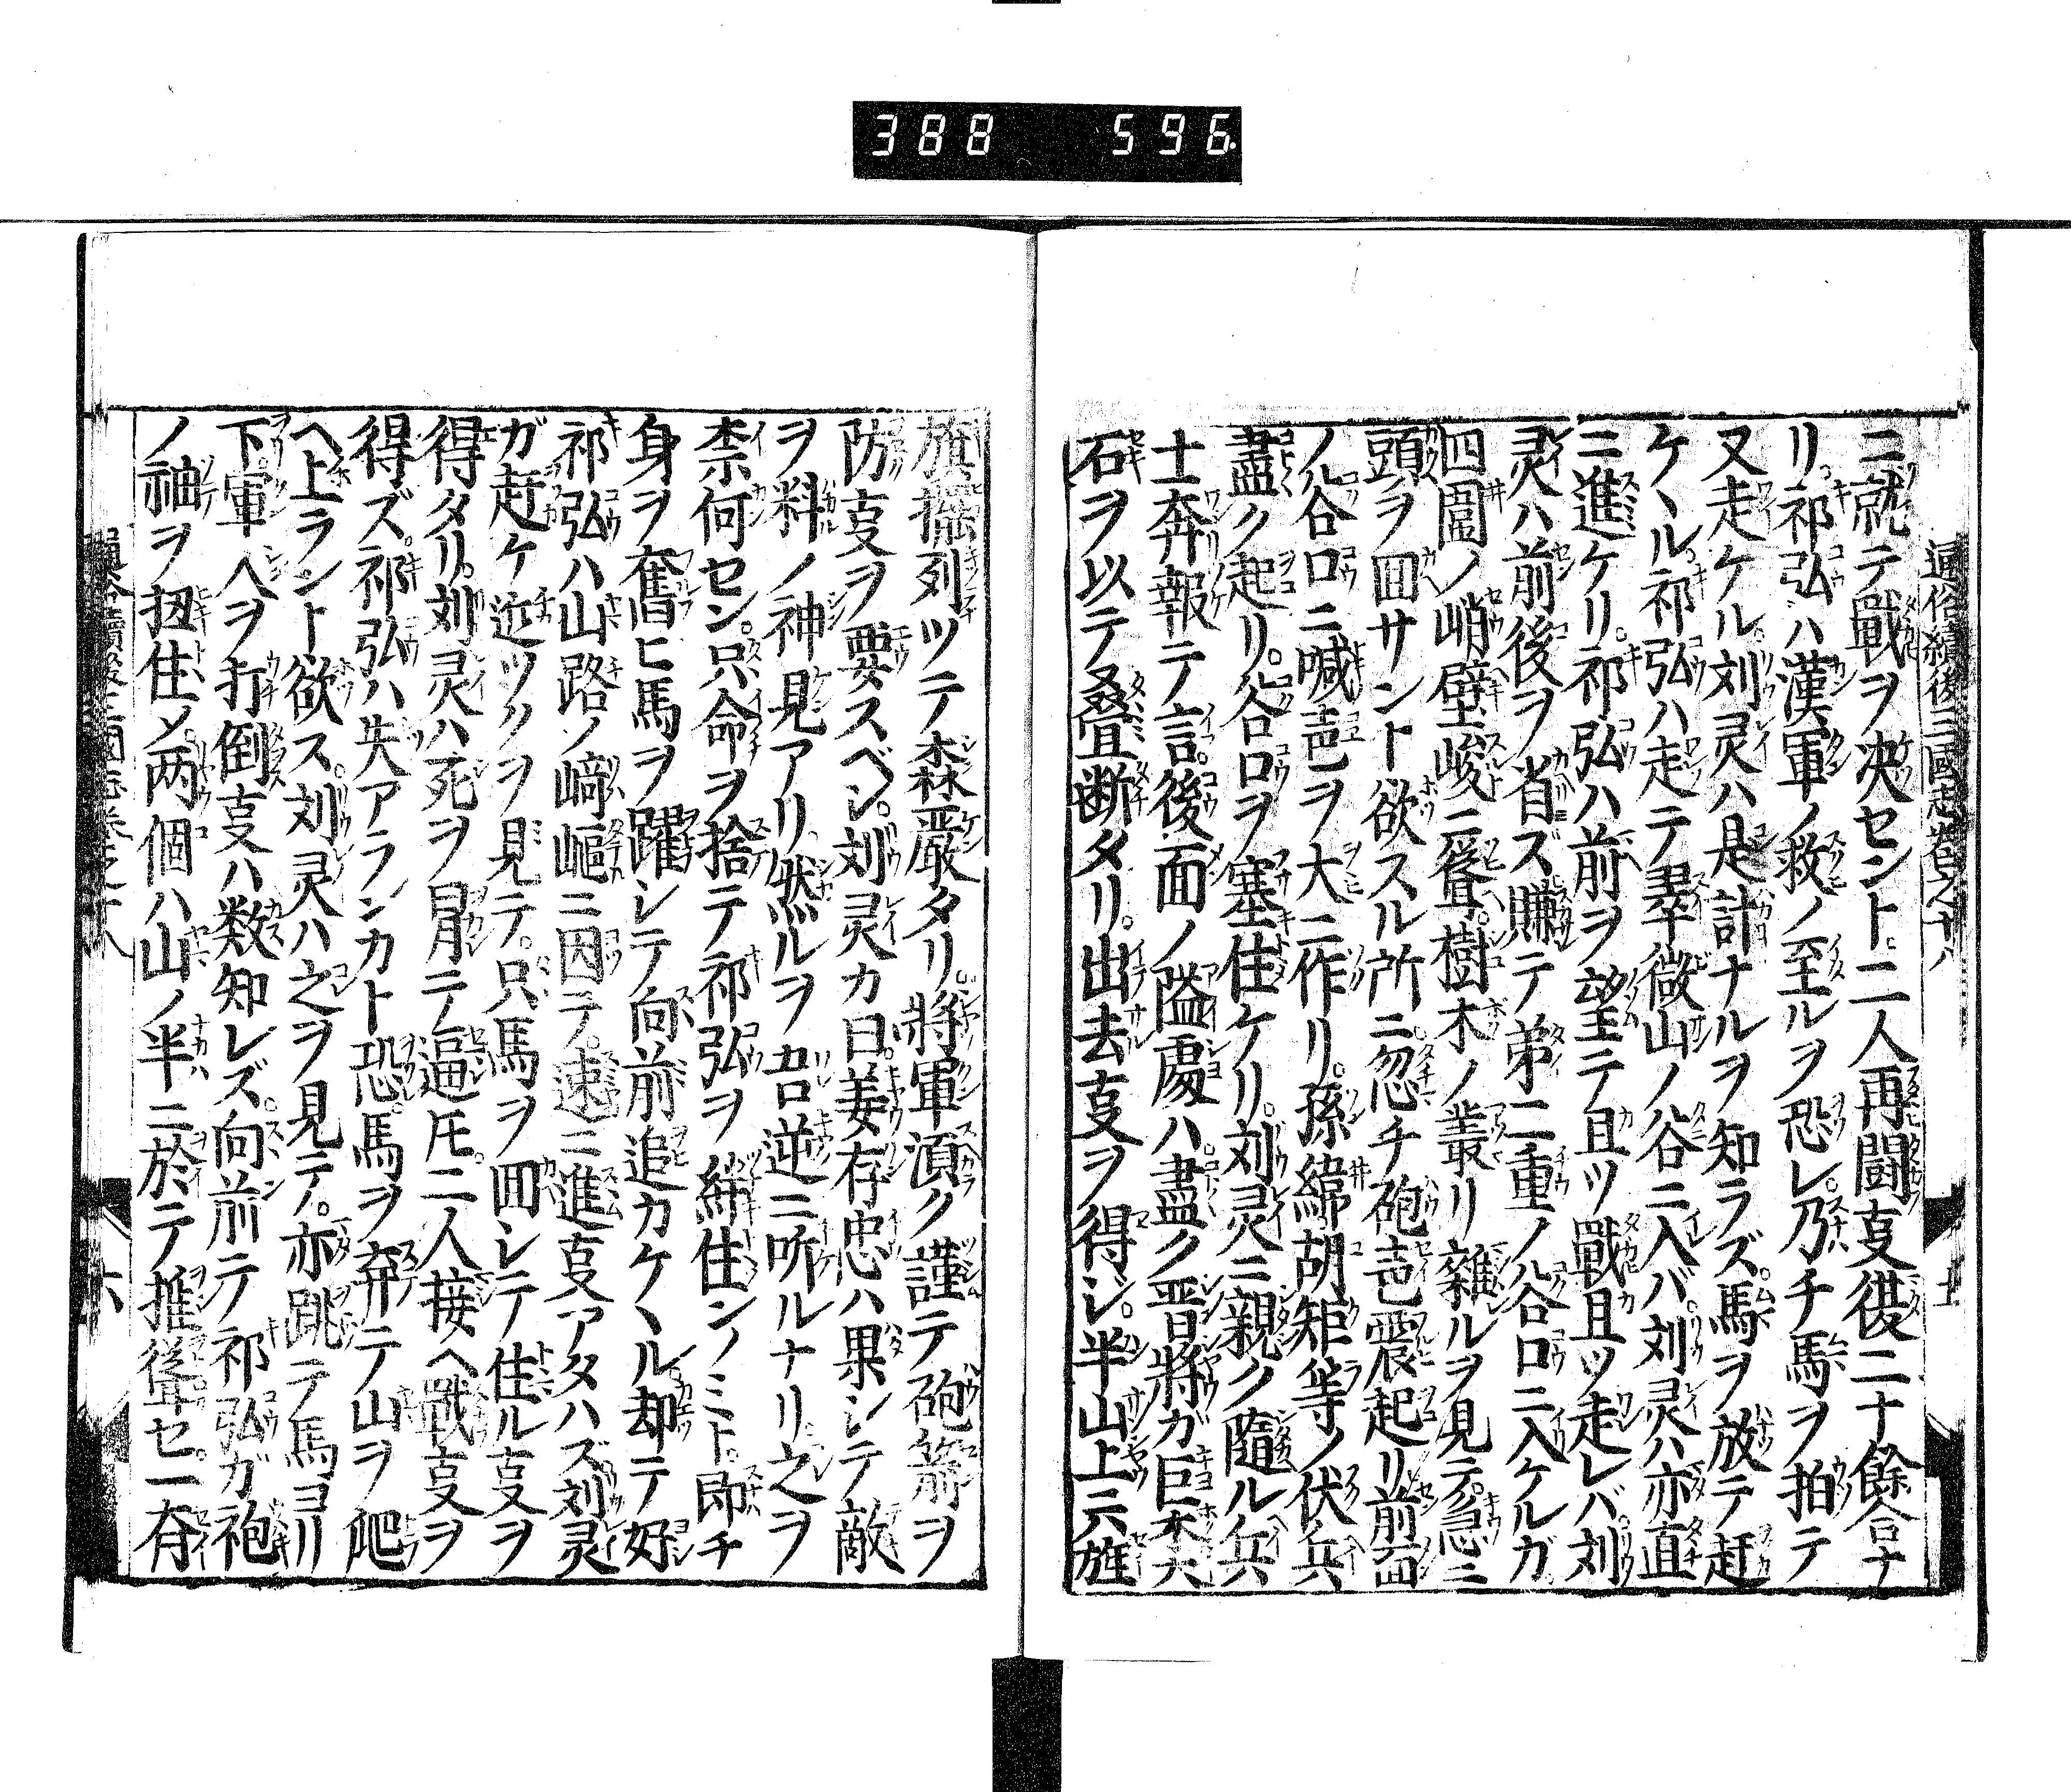 388 596
通俗續後三國志卷之十八
ニ就テ戰ヲ決セント二人再闘㕝復二十餘合ナ
リ祁弘ハ漢軍ノ救ノ至ルヲ恐レ乃チ馬ヲ拍テ
又走ケル刘灵ハ是計ナルヲ知ラズ馬ヲ放テ赶
ケヽル祁弘ハ走テ翠微山ノ谷ニ入バ刘灵ハ亦直
ニ進ケリ祁弘ハ前ヲ望テ且ツ戰且ツ走レバ刘
灵ハ前後ヲ省ズ賺テ弟二重ノ谷口ニ入ケルガ
四圍ノ峭壁峻ニ疊樹木ノ叢リ雜ルヲ見テ急ニ
頭ヲ囬サント欲スル所ニ忽チ砲声震起リ前面
ノ谷口ニ喊声ヲ大ニ作リ孫緯胡矩等ノ伏兵
盡ク起リ谷口ヲ塞住ケリ刘灵ニ親ク隨ル兵
士奔報テ言後面ノ隘處ハ盡ク晋將ガ巨木大
石ヲ以テ疊断タリ出去㕝ヲ得シ半山上ニ旌
旗擺列ツテ森嚴タリ將軍湏ク謹テ砲箭ヲ
防㕝ヲ要スベシ刘灵カ曰姜存忠ハ果シテ敵
ヲ料ノ神見アリ然ルヲ吾逆ニ听ルナリ之ヲ
柰何セン只命ヲ捨テ祁弘ヲ絣住ンノミト即チ
身ヲ奮ヒ馬ヲ躍シテ向前追カケヽル却テ好
祁弘ハ山路ノ﨑嶇ニ因テ速ニ進㕝アタハズ刘灵
ガ赶ケ近ツクヲ見テ只馬ヲ囬シテ住ル㕝ヲ
得タリ刘灵ハ死ヲ冒テ逼圧二人接ヘ戰㕝ヲ
得ズ祁弘ハ失アランカト恐馬ヲ弃テ山ヲ爬
ヘ上ラント欲ス刘灵ハ之ヲ見テ亦跳テ馬ヨリ
下軍人ヲ打倒㕝ハ数知レズ向前テ祁弘ガ袍
ノ袖ヲ扭住メ両個ハ山ノ半ニ於テ推